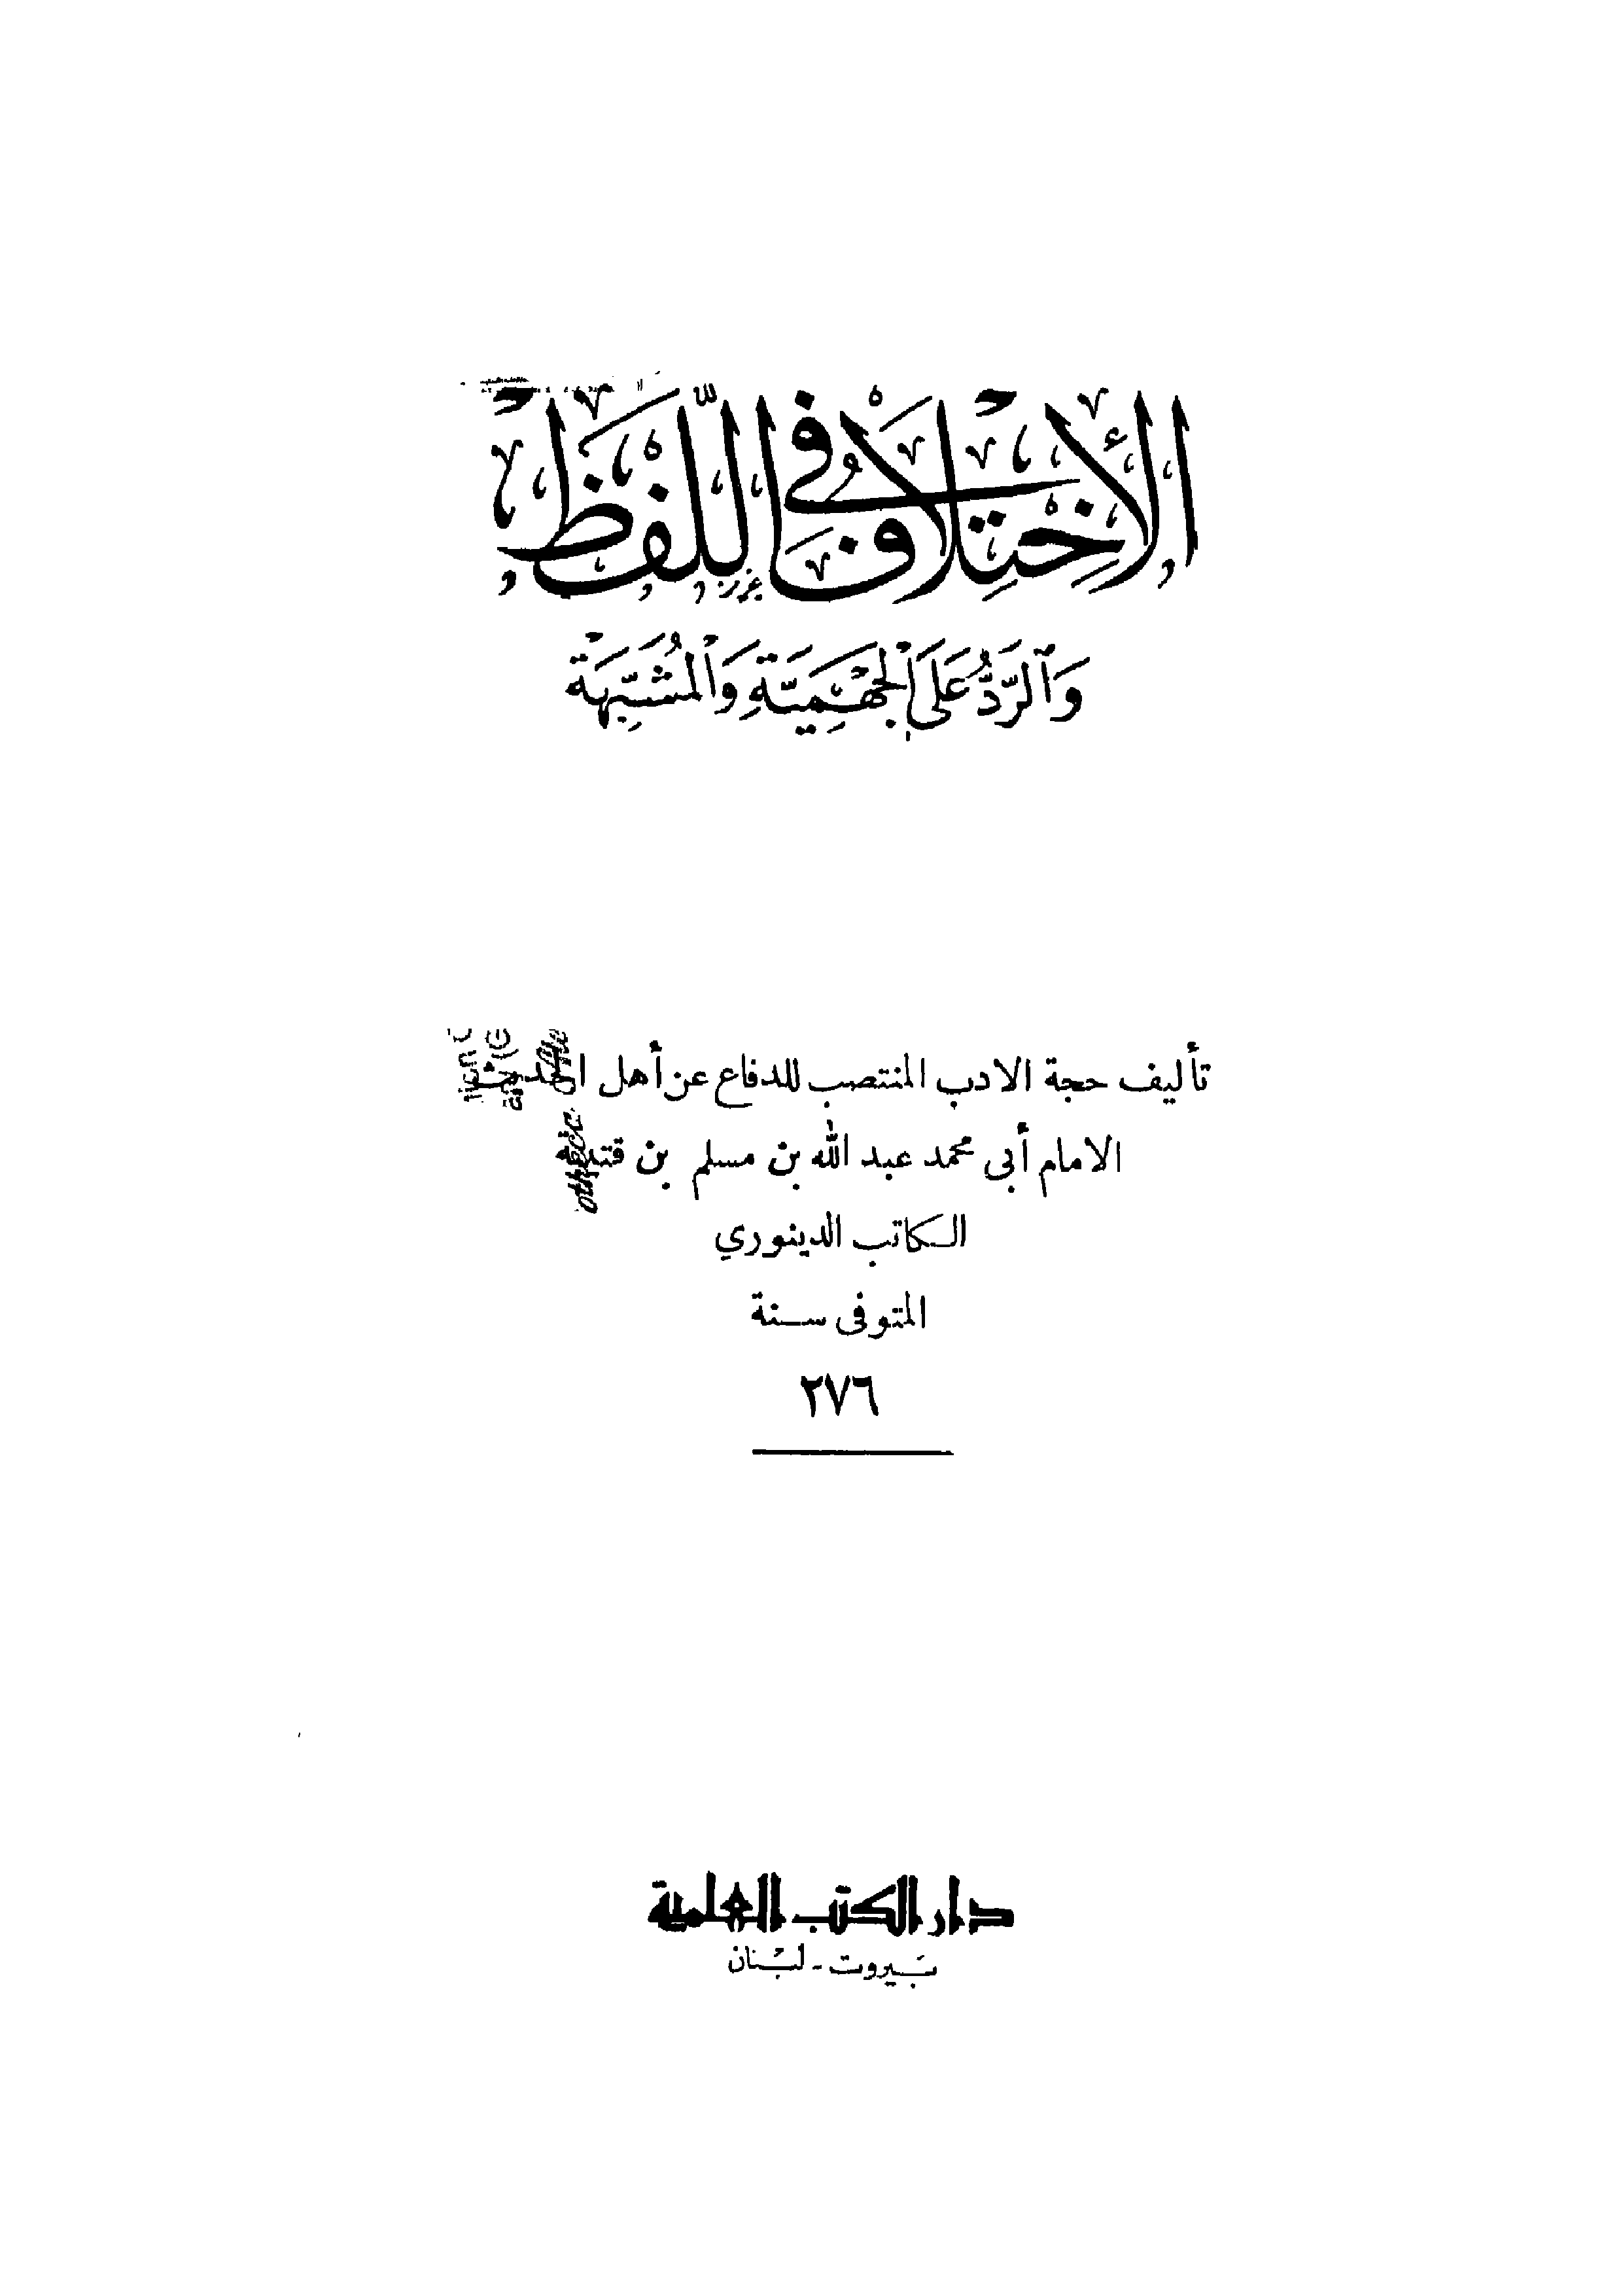 الاختلاف في اللفظ
والرد على الجهمية والمشبهة
تأليف حجة الادب المنتصب للدفاع عن أهل الحديث
الامام أبي محمد عبد الله بن مسلم بن قتيبة
الكاتب الدينوري
المتوفى سنة
٢٧٦
دار الكتب العلمية
بيروت - لبنان